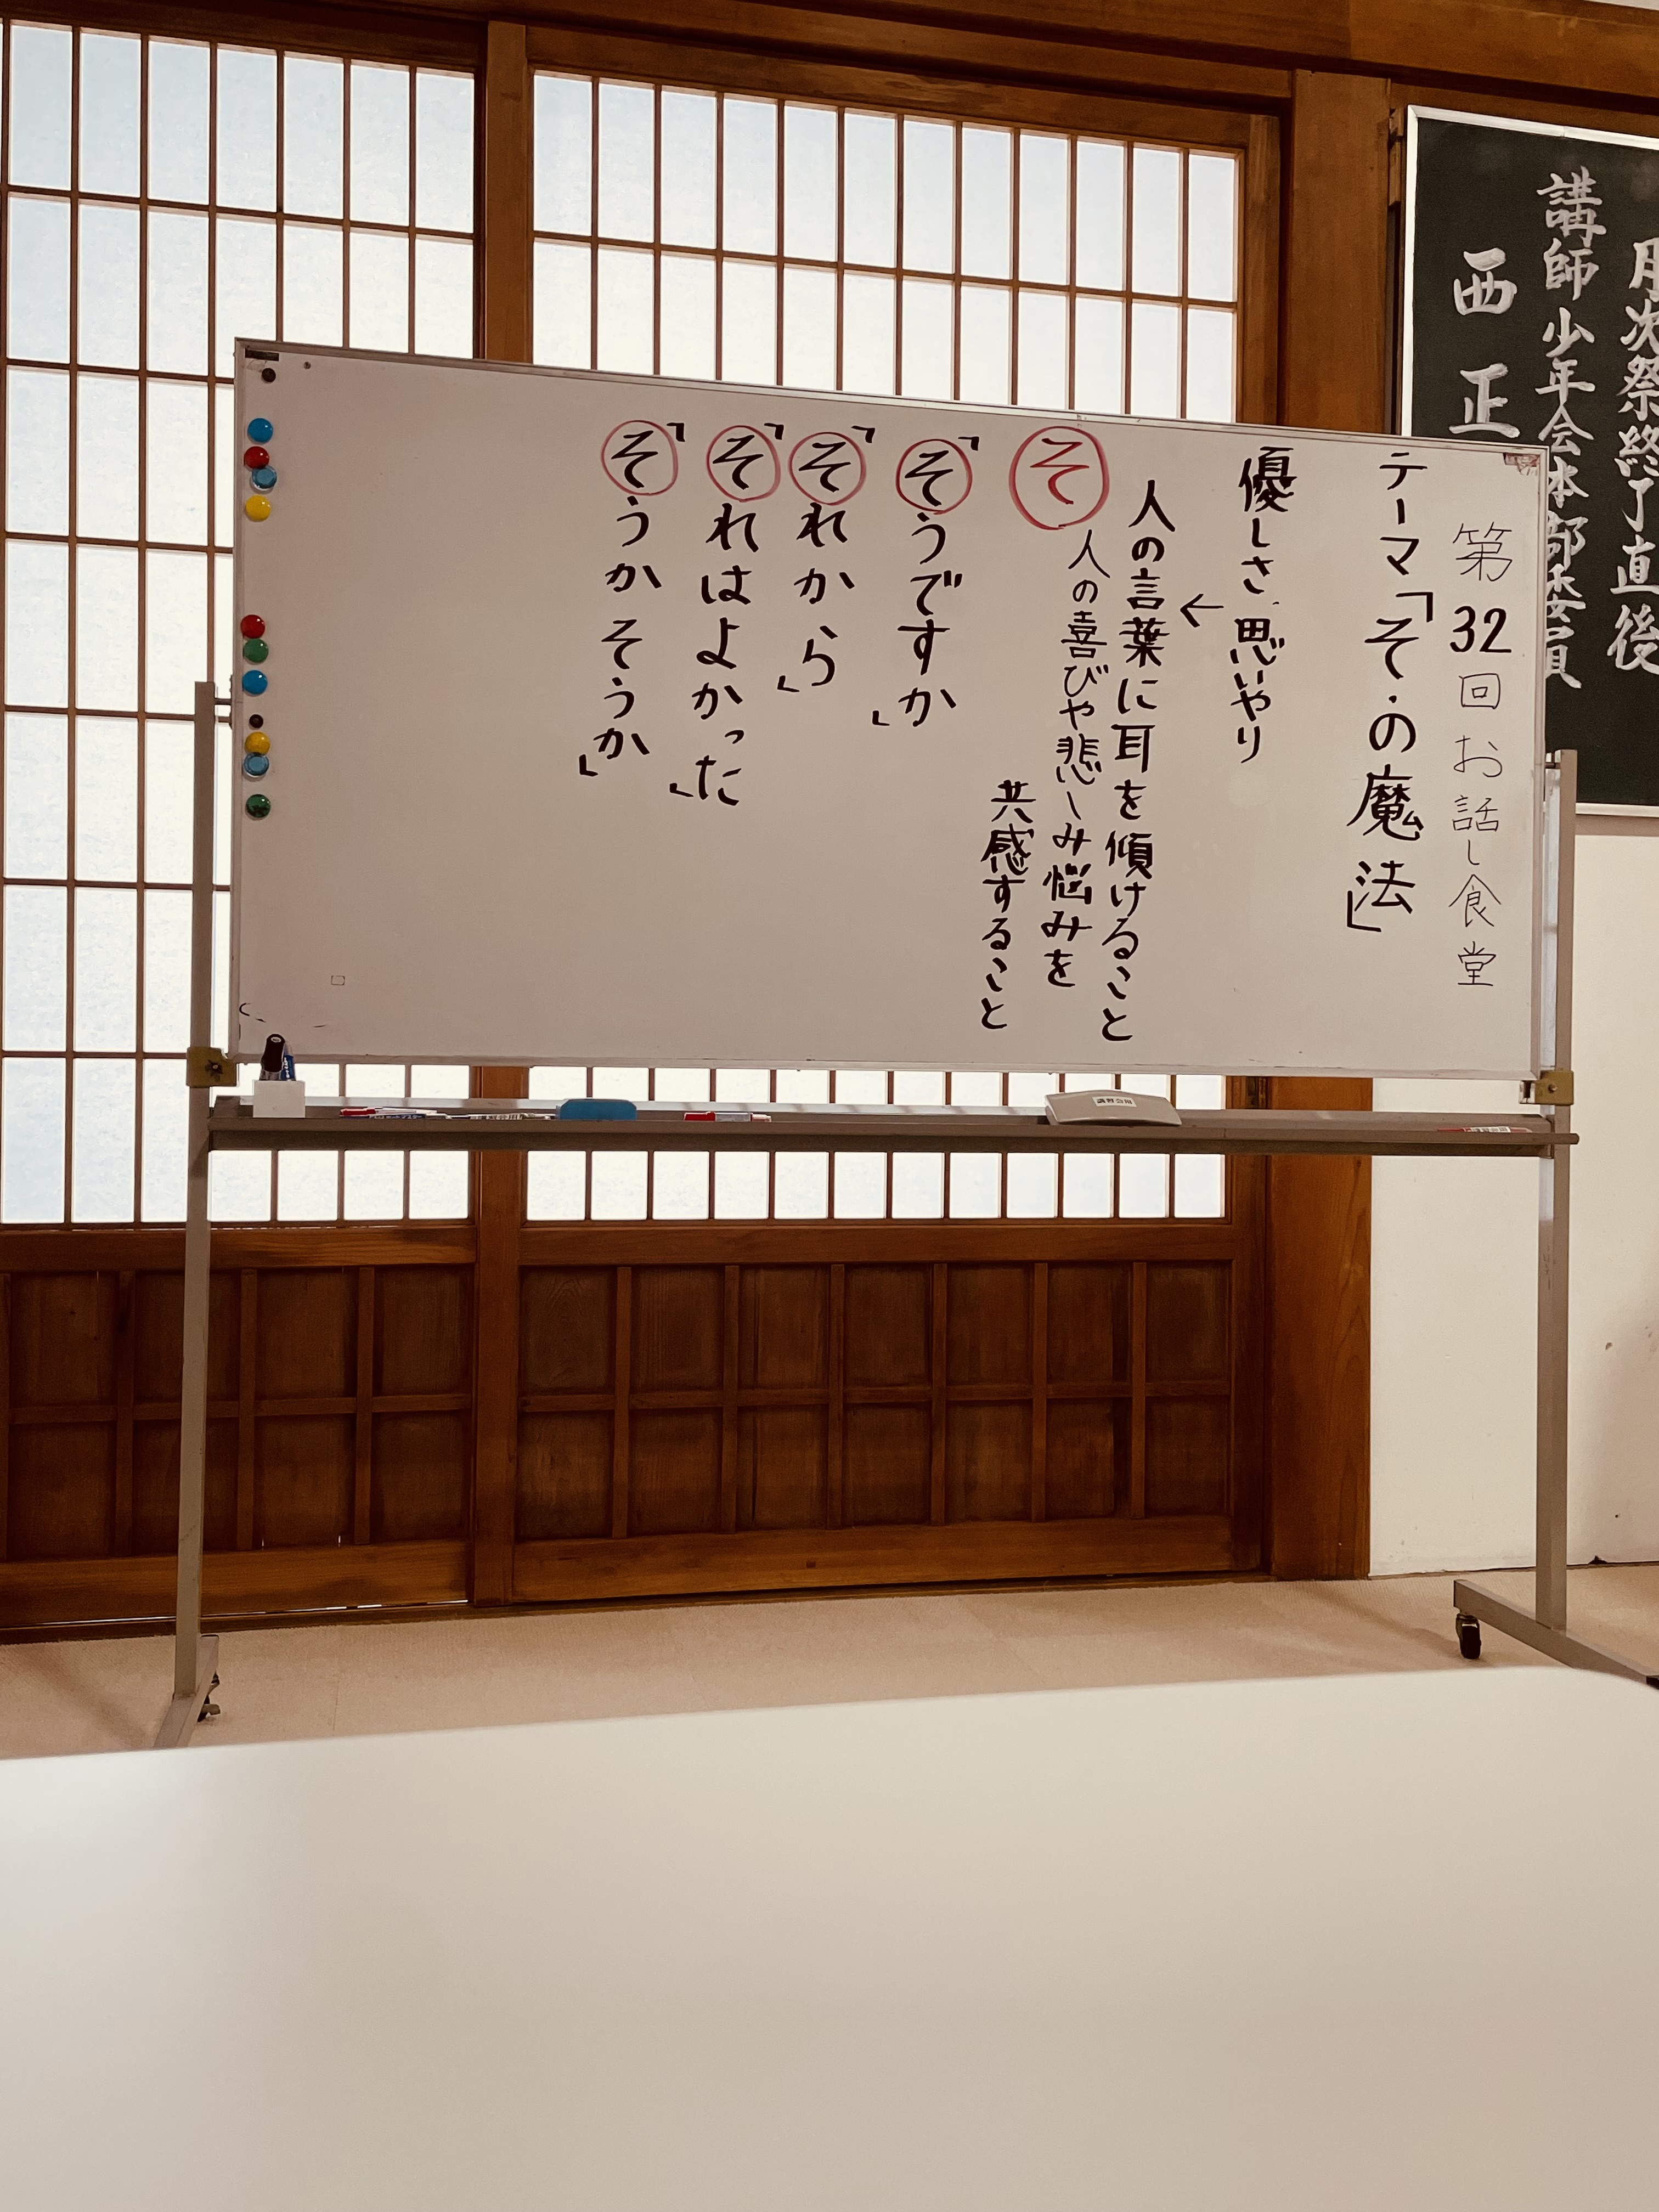 第32回お話し食堂
テーマ「そ・の魔法」
優しさ 思いやり
←
人の言葉に耳を傾けること
人の喜びや悲しみ悩みを
共感すること
そ
「そうですか」
「それから」
「それはよかった」
「そうか そうか」
月次祭終了直後
講師 少年会本部委員
西 正